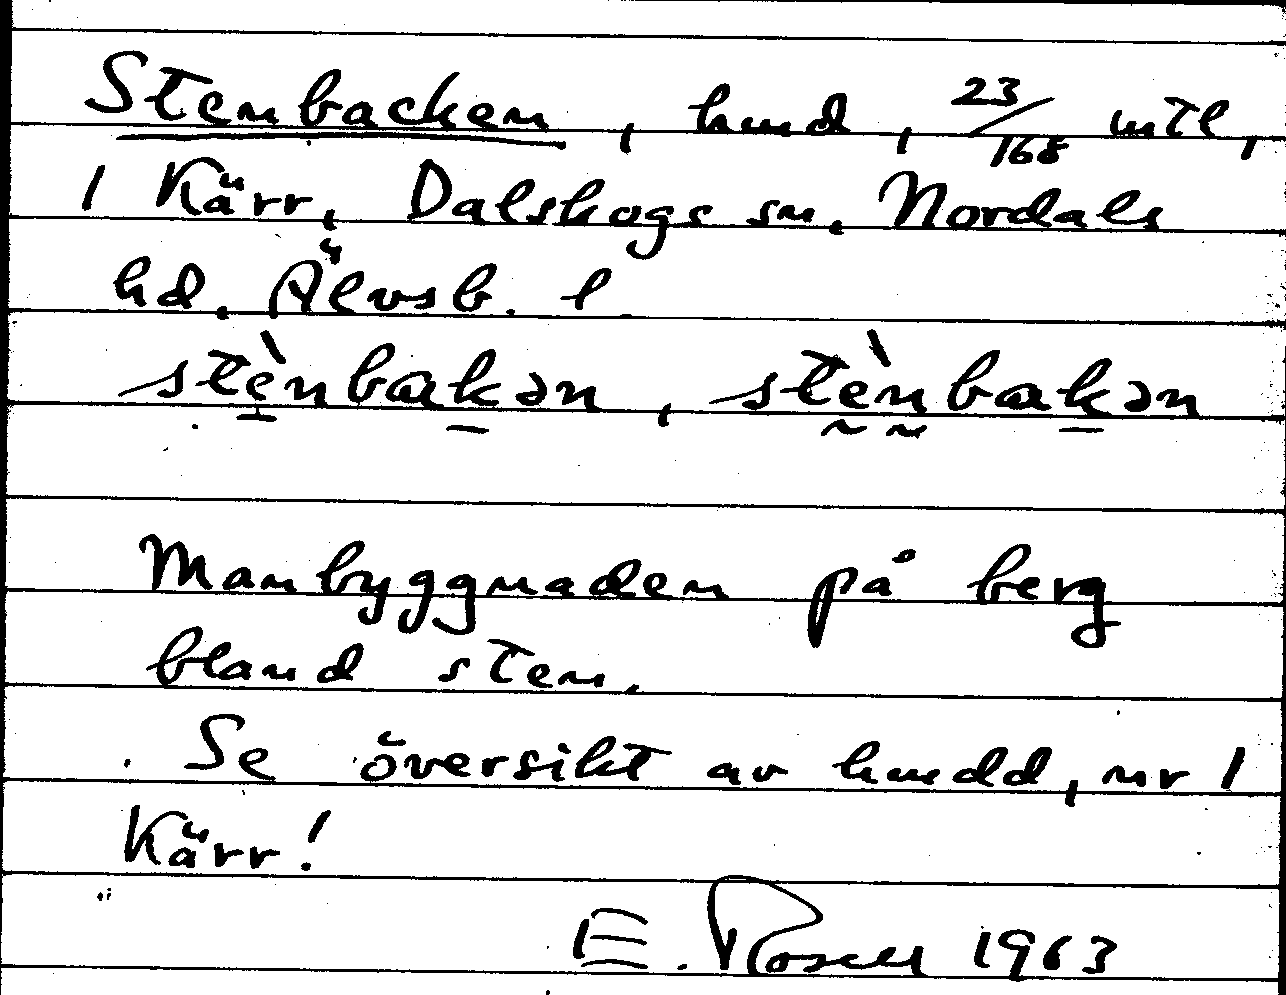 Stenbacken, hmd, 23/168 mtl,
1 Kärr, Dalskogs sn, Nordals
hd. Älvsb. l
stènbakən, stènbakən
Manbyggnaden på berg
bland sten.
Se översikt av hmdd, nr 1
Kärr!
E. Rosell 1963